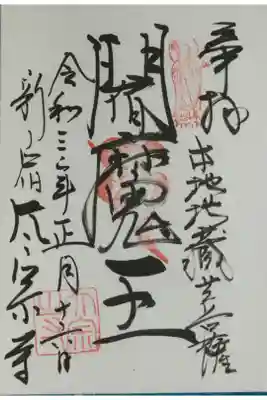 奉拝
本地地蔵菩薩
閻魔王
令和三年正月十六日
寺